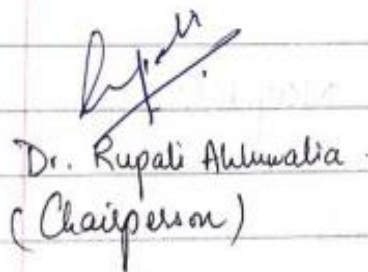 Rupali
Dr. Rupali Ahluwalia.
(Chairperson)